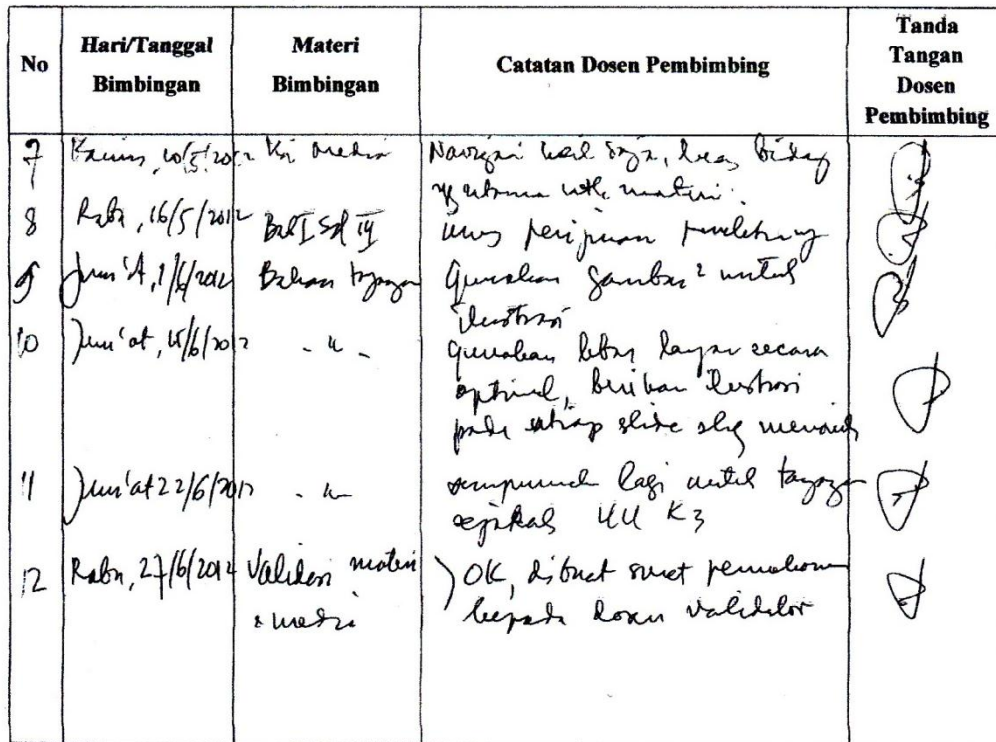 No
Hari/Tanggal
Bimbingan
Materi
Bimbingan
Catatan Dosen Pembimbing
Tanda
Tangan
Dosen
Pembimbing
7 Kamis, 10/5/2012 media Navigasi kecil saja, luas bidang
yg utama utk materi.
8 Rabu, 16/5/2012 Bab I Sd IV
9 Jum'at, 1/6/2012 Bahan tayangan Gunakan gambar² untuk
ilustrasi
10 Jum'at, 15/6/2012 - " - gunakan lebar layar secara
optimal, berikan ilustrasi
pada setiap slide shg menarik
11 Jum'at 22/6/2012 - " - sempurnakan lagi untuk tayangan
UU K3
12 Rabu, 27/6/2012 Validasi materi OK, dibuat surat permohonan
& media kepada dosen validator